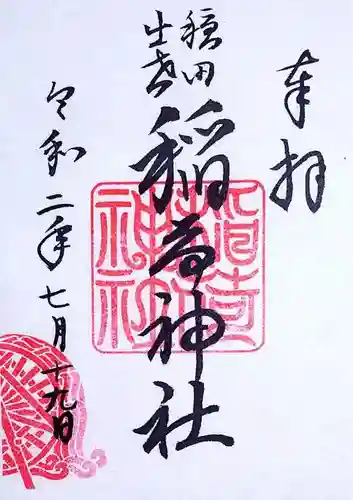 奉拝
穏田
出世
稲荷神社
令和二年七月十九日